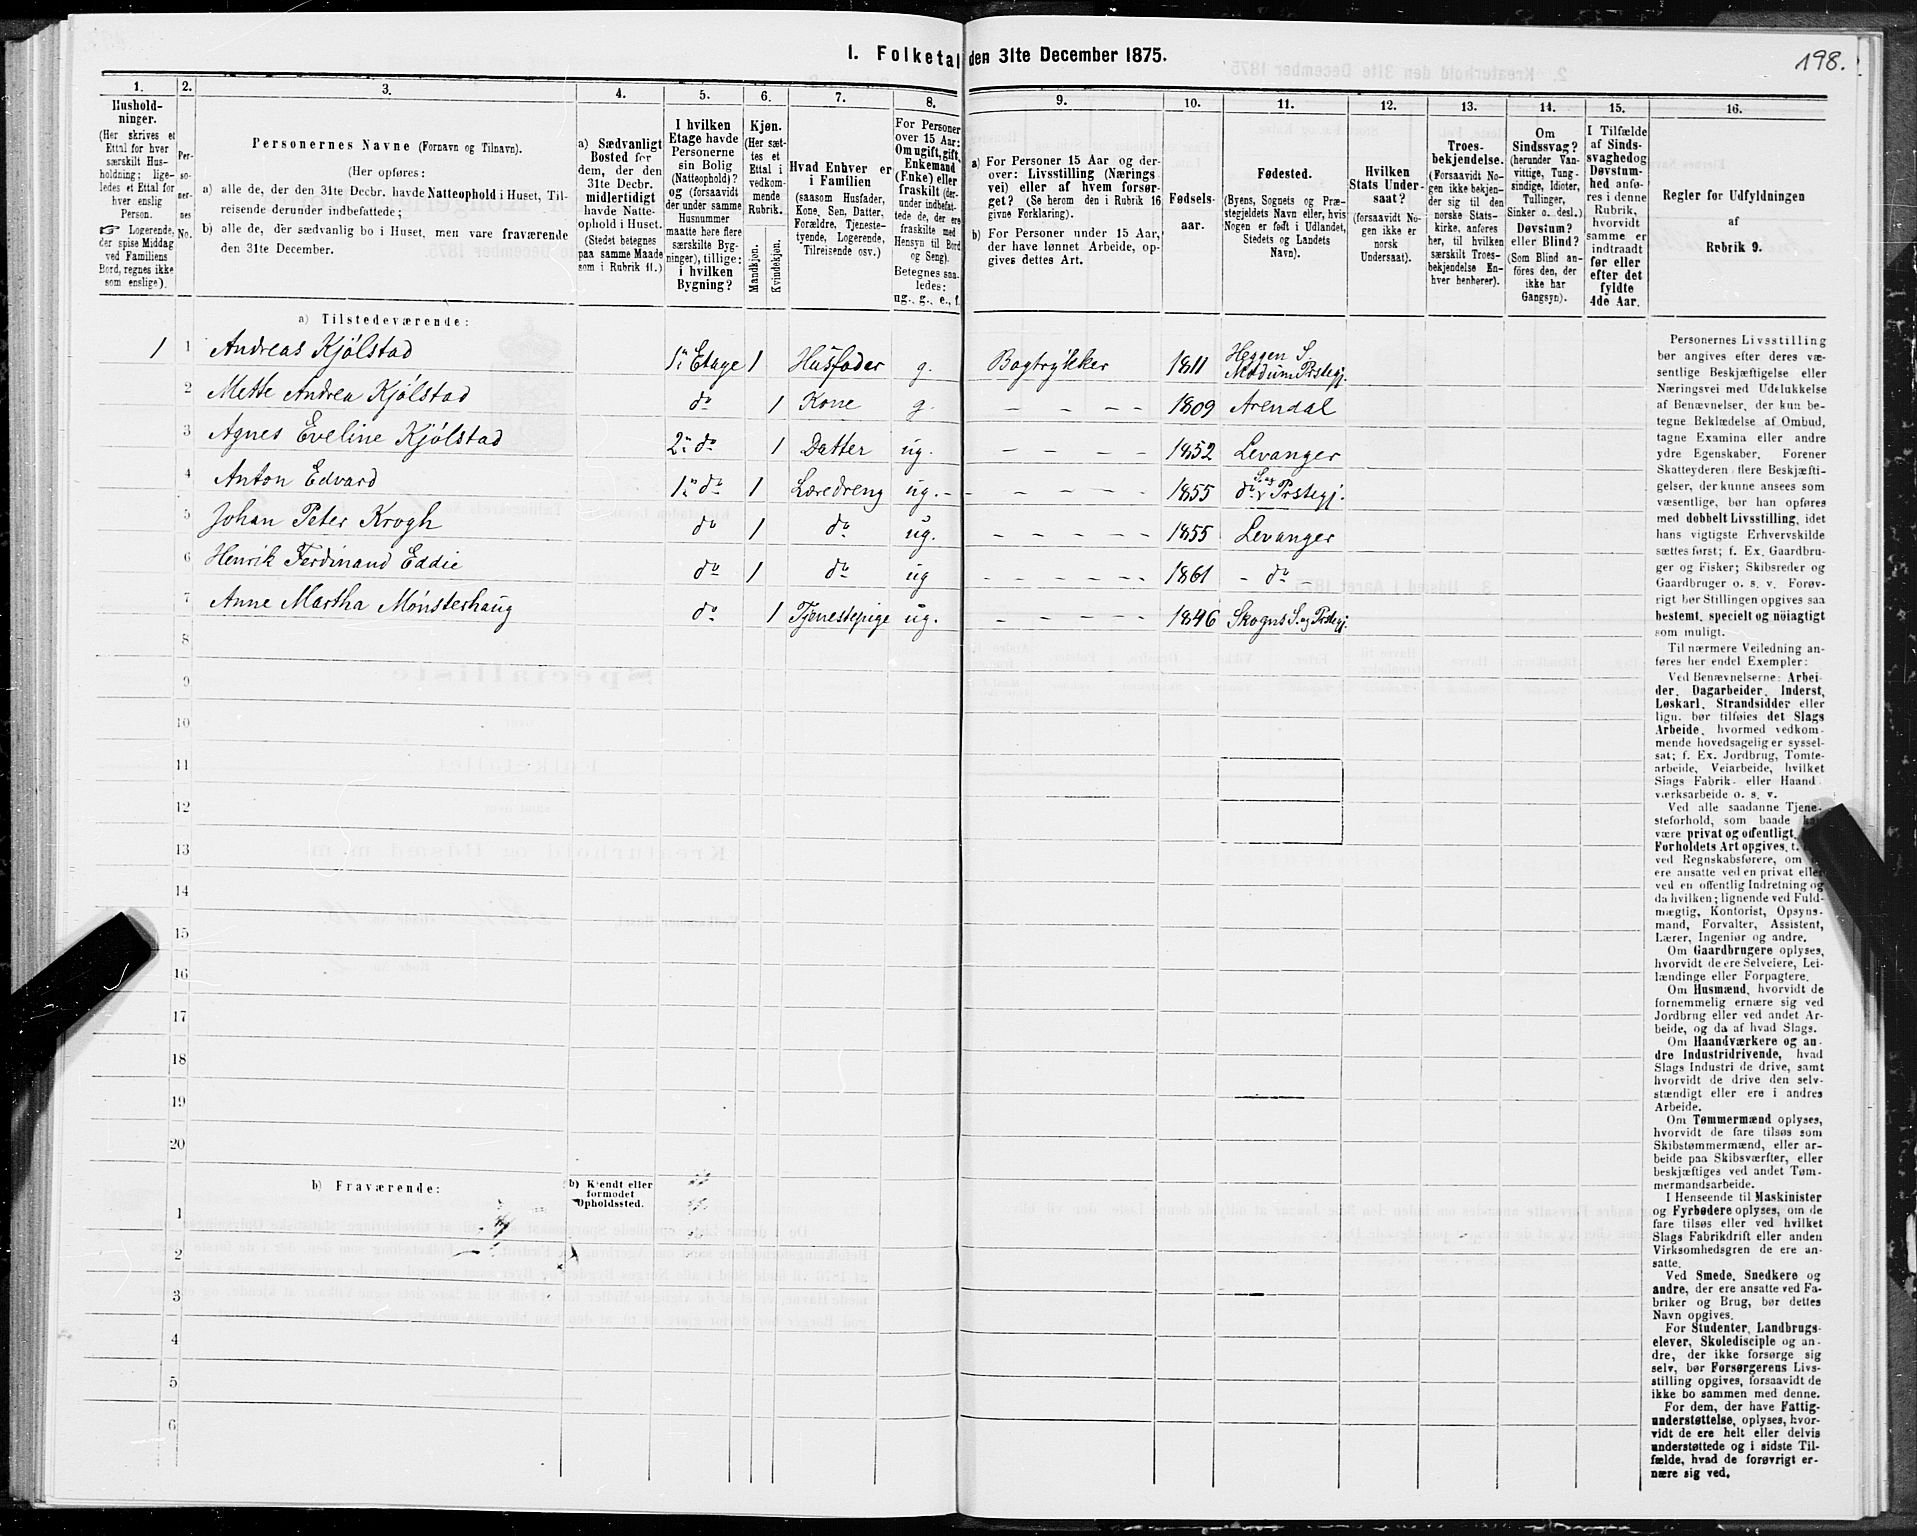 198.
I. Folketal den 31te December 1875.
1. 2. 3. 4. 5. 6. 7. 8. 9. 10. 11. 12. 13. 14. 15. 16.
Hushold-
ninger.
(Her skrives et
Ettal for hver
særskilt Hus-
holdning; lige-
ledes et Ettal for
hver enslig
Person.
☞ Logerende,
der spise Middag
ved Familiens
Bord, regnes ikke
som enslige).
Per-
so-
ner-
nes
No.
Personernes Navne (Fornavn og Tilnavn).
(Her opføres:
a) alle de, der den 31te Decbr. havde Natteophold i Huset, Til-
reisende derunder indbefattede;
b) alle de, der sædvanlig bo i Huset, men vare fraværende
den 31te December.
a) Sædvanligt
Bosted for
dem, der den
31te Decbr.
midlertidigt
havde Natte-
ophold i Huset.
(Stedet betegnes
paa samme Maade
som i Rubrik 11.)
I hvilken
Etage havde
Personerne
sin Bolig
(Natteophold)?
og (forsaavidt
der under samme
Husnummer
maatte høre flere
særskilte Byg-
ninger), tillige:
i hvilken
Bygning?
Kjøn.
(Her sæt-
tes et
Ettal i
vedkom-
mende
Rubrik.
Mandkjøn.
Kvindekjøn.
Hvad Enhver er
i Familien
(saasom Husfader,
Kone, Søn, Datter,
Forældre, Tjeneste-
tyende, Logerende,
Tilreisende osv.)
For Personer
over 15 Aar:
Om ugift, gift,
Enkemand
(Enke) eller
fraskilt (der-
under indbefat-
tede de, der ere
fraskilte med
Hensyn til Bord
og Seng).
Betegnes saa-
ledes:
ug., g., e., f.
a) For Personer 15 Aar og der-
over: Livsstilling (Nærings
vei) eller af hvem forsør-
get? (Se herom den i Rubrik 16
givne Forklaring).
b) For Personer under 15 Aar,
der have lønnet Arbeide, op-
gives dettes Art.
Fødsels-
aar.
Fødested.
(Byens, Sognets og Præ-
stegjeldets Navn eller, hvis
Nogen er født i Udlandet,
Stedets og Landets
Navn).
Hvilken
Stats Under-
saat?
(forsaavidt No-
gen ikke er
norsk
Undersaat).
Troes-
bekjendelse.
(Forsaavidt No-
gen ikke bekjen-
der sig til den
norske Stats-
kirke, anføres
her, til hvilken
særskilt Troes-
bekjendelse En-
hver henhører).
Om
Sindssvag?
(herunder Van-
vittige, Tung-
sindige, Idioter,
Tullinger,
Sinker o. desl.)
Døvstum?
eller Blind?
(Som Blind an-
føres den, der
ikke har
Gangsyn).
I Tilfælde
af Sinds-
svaghed og
Døvstum-
hed anfø-
res i denne
Rubrik,
hvorvidt
samme er
indtraadt
før eller
efter det
fyldte
4de Aar.
Regler for Udfyldningen
af
Rubrik 9.
a) Tilstedeværende:
1 1 Andreas Kjølstad 1ste Etage 1 Husfader g. Bogtrykker 1811 Heggen S. Modum Prstegj.
2 Mette Andrea Kjølstad do 1 Kone g. - - - - 1809 Arendal
3 Agnes Eveline Kjølstad 2" do 1 Datter ug. - - - - 1852 Levanger
4 Anton Edvard 1" do 1 Læredreng ug. - - - - - 1855 do S. og Prstegj.
5 Johan Peter Krogh do 1 do ug. - - - - - 1855 Levanger
6 Henrik Ferdinand Eddie do 1 do ug - - - - - 1861 - do -
7 Anne Martha Mønsterhaug do 1 Tjenestepige ug. - - - - 1846 Skogns S. og Prstegj.
8
9
10
11
12
13
14
15
16
17
18
19
20
b) Fraværende:
b) Kjendt eller
formodet
Opholdssted.
1
2
3
4
5
6
Personernes Livsstilling
bør angives efter deres væ-
sentlige Beskjæftigelse eller
Næringsvei med Udelukkelse
af Benævnelser, der kun be-
tegne Beklædelse af Ombud,
tagne Examina eller andre
ydre Egenskaber. Forener
Skatteyderen flere Beskjæfti-
gelser, der kunne ansees som
væsentlige, bør han opføres
med dobbelt Livsstilling, idet
hans vigtigste Erhvervskilde
sættes først; f. Ex. Gaardbru-
ger og Fisker; Skibsreder og
Gaardbruger o. s. v. Forøv-
rigt bør Stillingen opgives saa
bestemt, specielt og nöiagtigt
som muligt.
Til nærmere Veiledning an-
føres her endel Exempler:
Ved Benævnelserne: Arbei-
der, Dagarbeider, Inderst,
Løskarl, Strandsidder eller
lign. bør tilføies det Slags
Arbeide, hvormed vedkom-
mende hovedsagelig er syssel-
sat; f. Ex. Jordbrug, Tomte-
arbeide, Veiarbeide, hvilket
Slags Fabrik- eller Haand
værksarbeide o. s. v.
Ved alle saadanne Tjene-
steforhold, som baade
være privat og offentligt,
Forholdets Art opgives, t.
ved Regnskabsførere, om
ere ansatte ved en privat eller
ved en offentlig Indretning og
da hvilken; lignende ved Fuld-
mægtig, Kontorist, Opsyns-
mand, Forvalter, Assistent,
Lærer, Ingeniør og andre.
Om Gaardbrugere oplyses,
hvorvidt de ere Selveiere, Lei-
lændinge eller Forpagtere.
Om Husmænd, hvorvidt de
fornemmelig ernære sig ved
Jordbrug eller ved andet Ar-
beide, og da af hvad Slags.
Om Haandværkere og an-
dre Industridrivende, hvad
Slags Industri de drive, samt
hvorvidt de drive den selv-
stændigt eller ere i andres
Arbeide.
Om Tømmermænd oplyses,
hvorvidt de fare tilsøs som
Skibstømmermænd, eller ar-
beide paa Skibsværfter, eller
beskjæftiges ved andet Tøm-
mermandsarbeide.
I Henseende til Maskinister
og Fyrbødere oplyses, om de
fare tilsøs eller ved hvilket
Slags Fabrikdrift eller anden
Virksomhedsgren de ere an-
satte.
Ved Smede, Snedkere og
andre, der ere ansatte ved Fa-
briker og Brug, bør dettes
Navn opgives.
For Studenter, Landbrugs-
elever, Skoledisciple og an-
dre, der ikke forsørge sig
selv, bør Forsørgerens Livs-
stilling opgives, forsaavidt de
ikke bo sammen med denne.
For dem, der have Fattig-
understøttelse, oplyses, hvor-
vidt de ere helt eller delvis
understøttede og i sidste Til-
fælde, hvad de forøvrigt er-
nære sig ved.